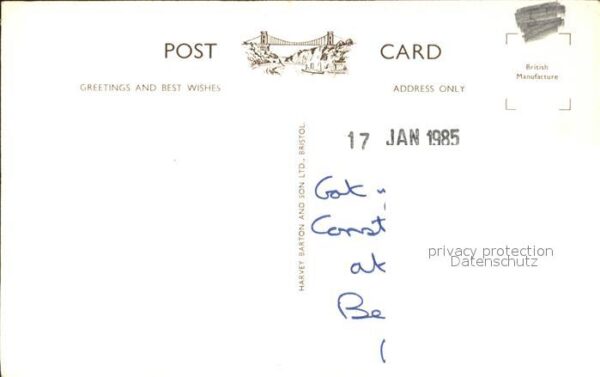 POST CARD
GREETINGS AND BEST WISHES
ADDRESS ONLY
British
Manufacture
HARVEY BARTON AND SON LTD., BRISTOL.
17 JAN 1985
Const
at
Be
privacy protection
Datenschutz